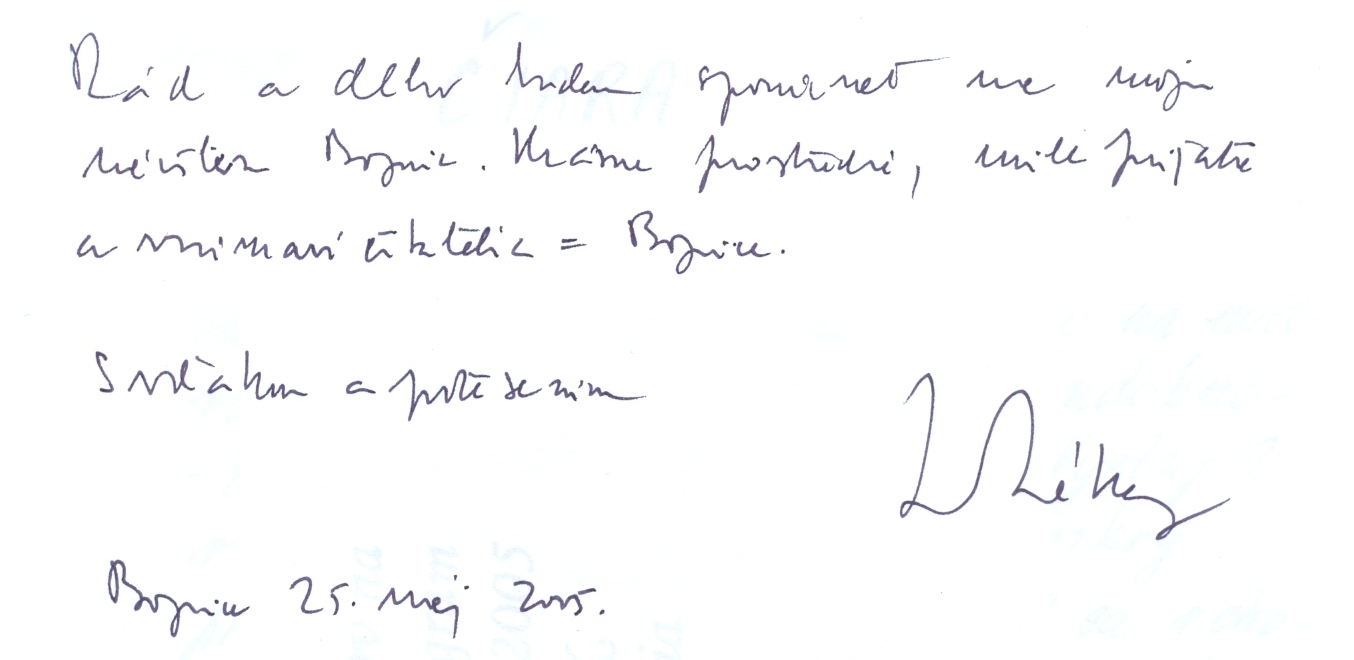 Rád a dlho budem spomínať na moju
návštevu Bojníc. Krásne prostredie, milé prijatie
a vnímaví čitatelia = Bojnice.
S vďakou a potešením
Bojnice 25. máj 2005.